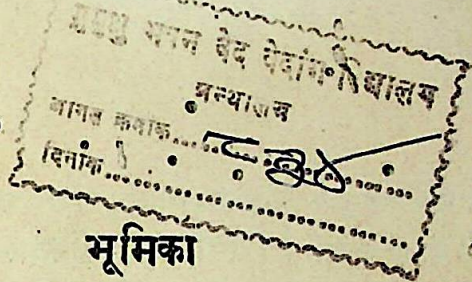 मुमुक्षु भवन वेद वेदांग विद्यालय
ग्रन्थालय
आगत क्रमांक......
दिनांक......
भूमिका